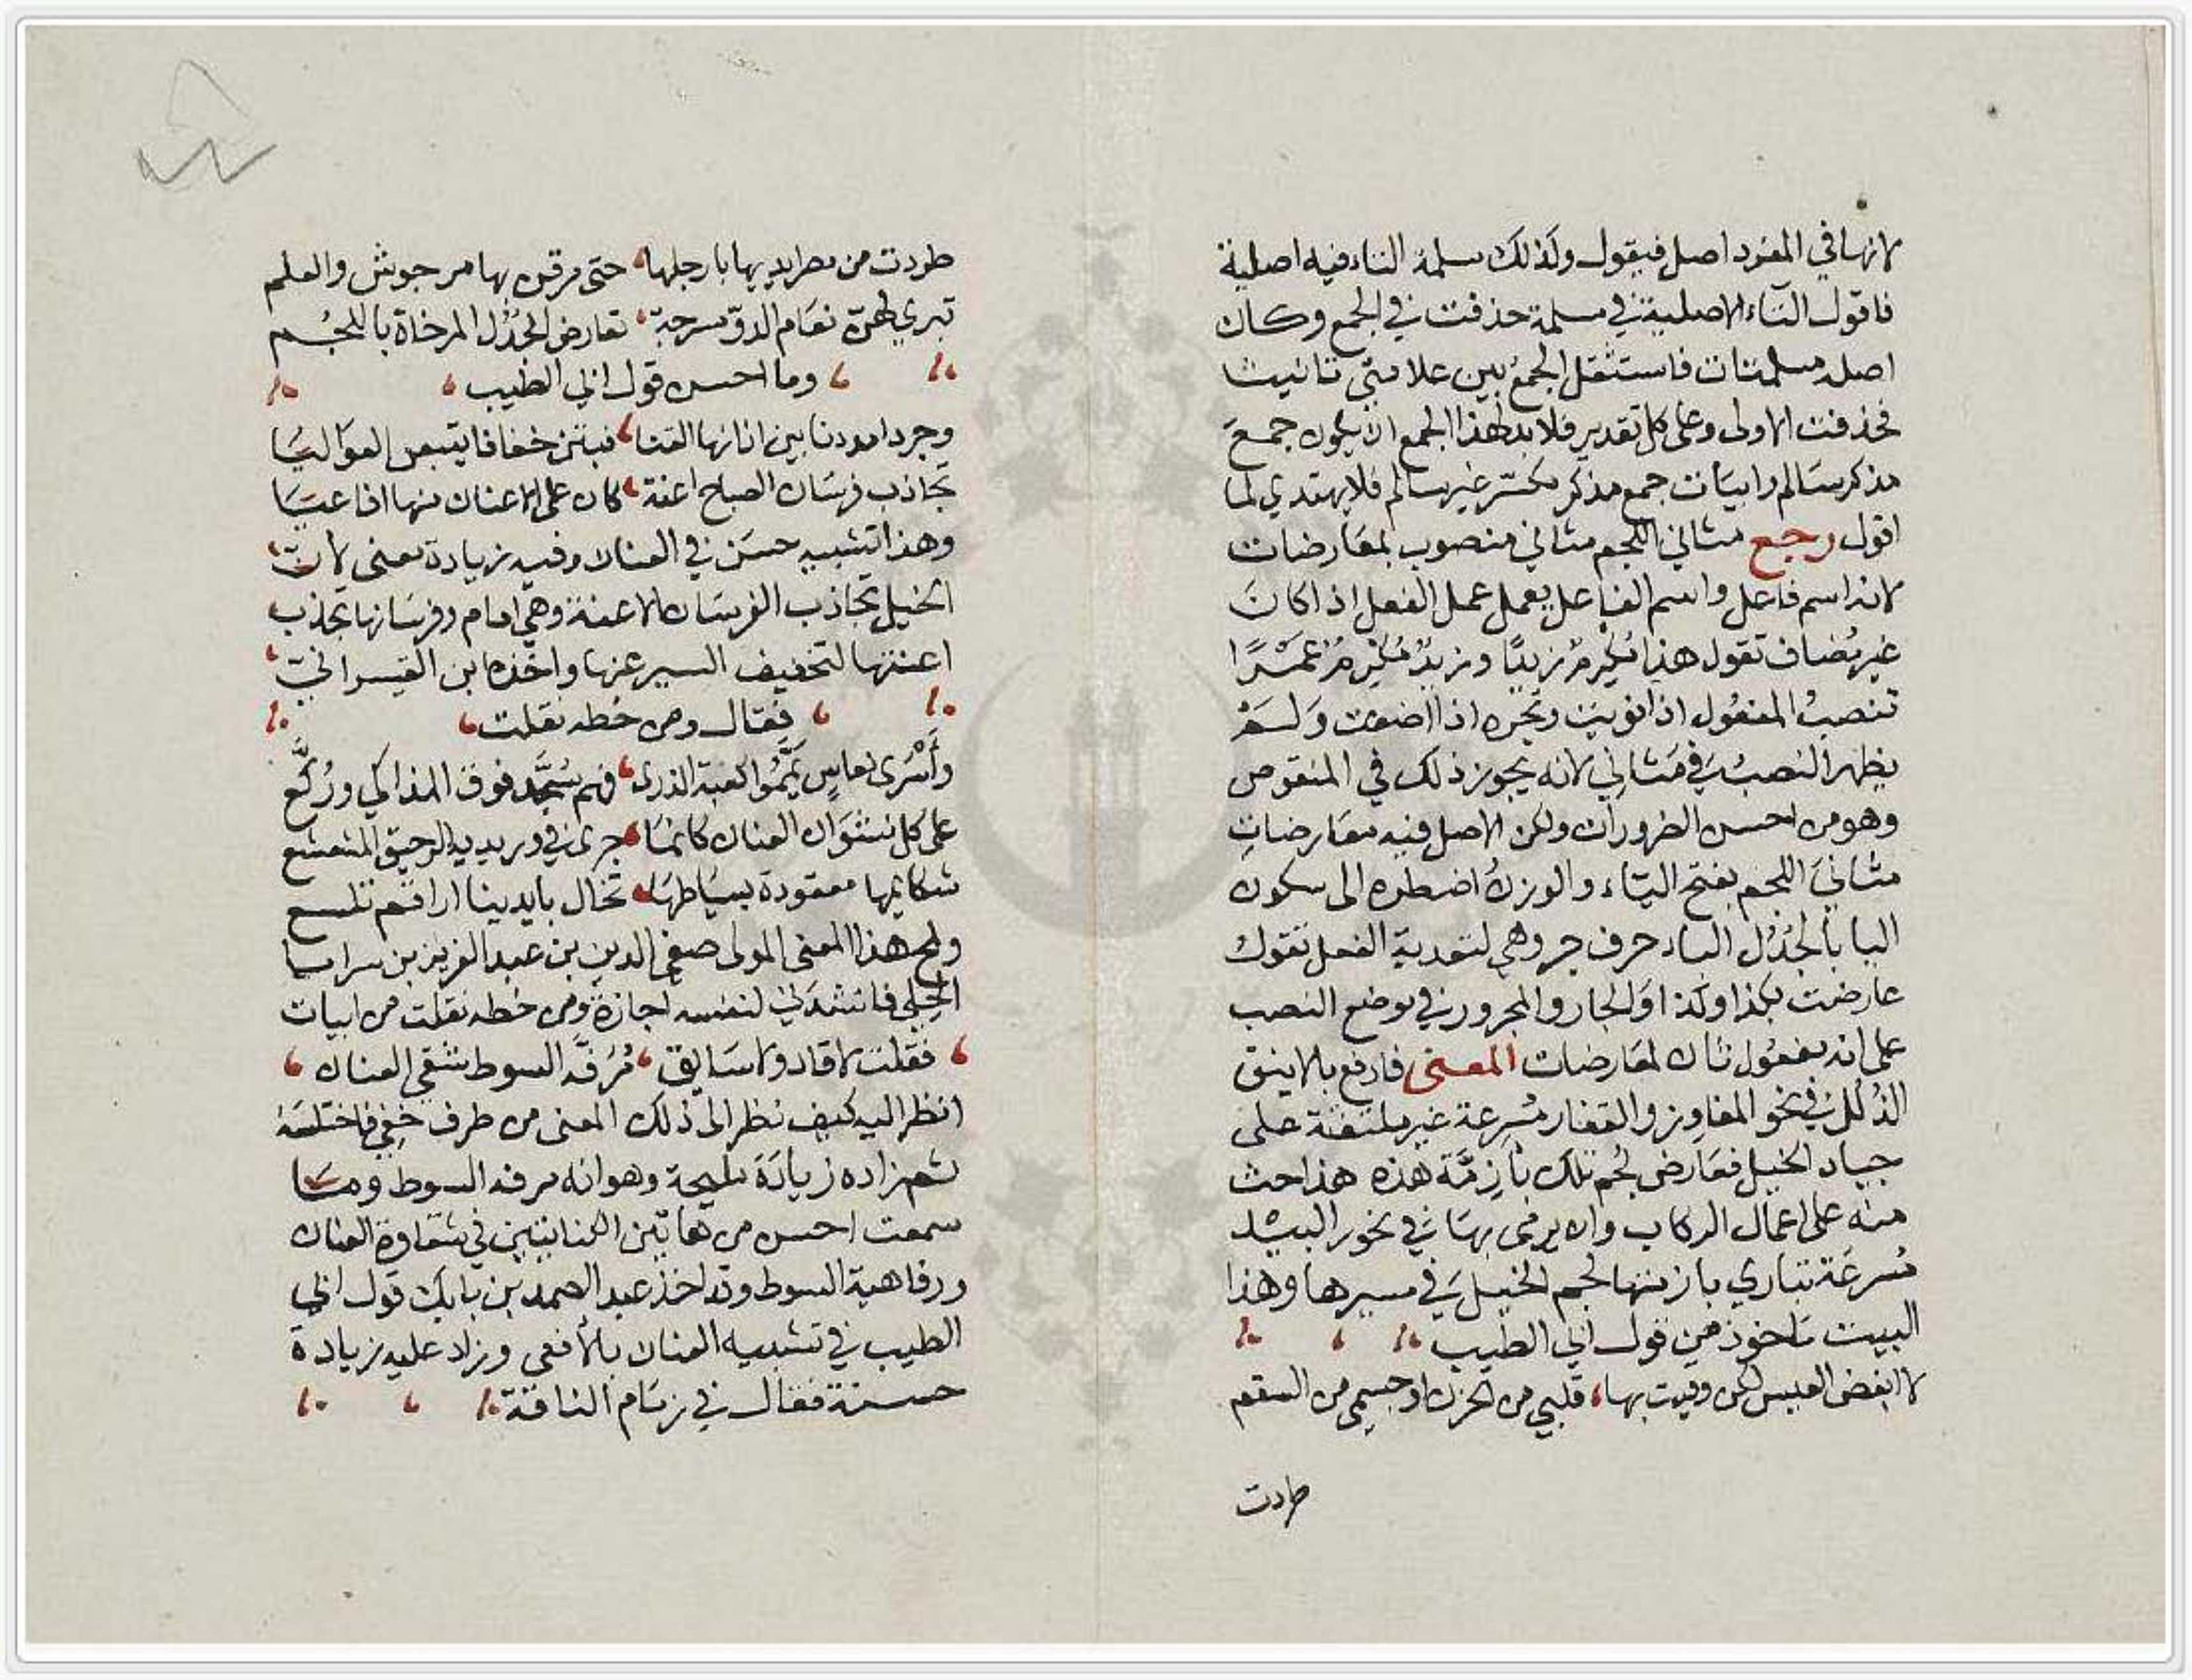 لانها في المفرد اصل فيقول وكذلك مسلمة التاء فيه اصلية
فاقول التاء الاصلية في مسلمة حذفت في الجمع وكان
اصله مسلمتات فاستثقل الجمع بين علامتي تانيث
فحذفت الاولى وعلى كل تقدير فلا بد لهذا الجمع ان يكون جمع
مذكر سالم وابيات جمع مذكر مكسر غير سالم فلا يهتدي لما
اقول رجع مثاني اللجم مثاني منصوب بمعارضات
لانه اسم فاعل واسم الفاعل يعمل عمل الفعل اذا كان
غير مضاف تقول هذا مكرم زيدًا وزيدٌ مكرم عمرًا
تنصب المفعول اذا نونت وتجره اذا اضفت ولم
يظهر النصب في مثاني لانه يجوز ذلك في المنقوص
وهو من احسن الضرورات ولكن الاصل فيه معارضات
مثاني اللجم بفتح الياء والوزن اضطره الى سكون
اليا بالجدل الباء حرف جر وهي لتعدية الفعل تقول
عارضت بكذا وكذا والجار والمجرور في موضع النصب
على انه مفعول ثان لمعارضات المعنى فادفع بالاينق
الذلل في نحو المفاوز والقفار مسرعة غير ملتفتة على
جياد الخيل فعارض لجم تلك بازمة هذه هذا حث
منه على اعمال الركاب وان يرمى بها في نحور البيد
مسرعة تباري بازمتها لجم الخيل في مسيرها وهذا
البيت ماخوذ من قول ابي الطيب
لا ابغض العيس لكن وقيت بها قلبي من الحزن او جسمي من السقم
طردت
طردت من مصر ايديها بارجلها حتى مرقن بها من جوش والعلم
تبري لهن نعام الدو مسرجة تعارض الجدل المرخاة باللجم
وما احسن قول ابي الطيب
وجردا مددنا بين اذانها القنا فبتن خفافا يتبعن العواليا
تجاذب فرسان الصباح اعنة كان على الاعناق منها افاعيا
وهذا تشبيه حسن في العنان وفيه زيادة معنى لان
الخيل تجاذب الفرسان الاعنة وهي امام وفرسانها تجذب
اعنتها لتخفيف السير عنها واخذه ابن القيسراني
فقال ومن خطه نقلت
وأسرى نعاس يمموا كعبة الندى فهم سجد فوق المذاكي وركع
على كل نشوان العنان كانما جرى في وريديه الرحيق المشعشع
شكايمها معقودة بسياطها تخال بايدينا اراقم تلسع
ولمح هذا المعنى المولى صفي الدين بن عبد العزيز بن سرايا
الحلي فانشدني لنفسه اجازة ومن خطه نقلت من ابيات
فقلت لا قاد ولا سايق مرفه السوط شقي العنان
انظر اليه كيف نظر الى ذلك المعنى من طرف خفي فاختلسه
ثم زاده زيادة مليحة وهو انه مرفه السوط وما
سمعت احسن من هاتين الكنايتين في شقاوة العنان
ورفاهية السوط وقد اخذ عبد الصمد بن بابك قول ابي
الطيب في تشبيه العنان بالأفعى وزاد عليه زيادة
حسنة فقال في زمام الناقة